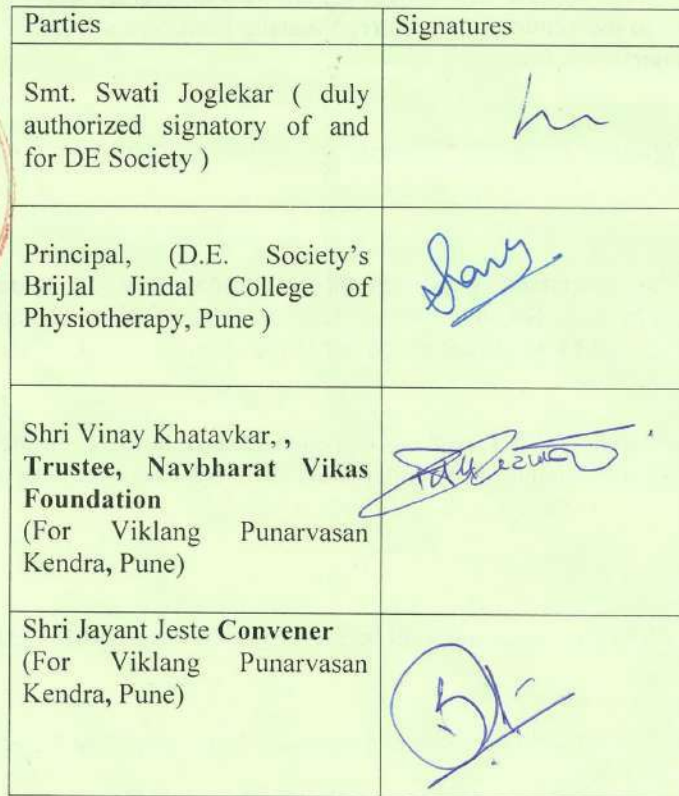 Parties
Signatures
Smt. Swati Joglekar ( duly
authorized signatory of and
for DE Society )
Principal, (D.E. Society's
Brijlal Jindal College of
Physiotherapy, Pune )
Shri Vinay Khatavkar, ,
Trustee, Navbharat Vikas
Foundation
(For Viklang Punarvasan
Kendra, Pune)
Shri Jayant Jeste Convener
(For Viklang Punarvasan
Kendra, Pune)